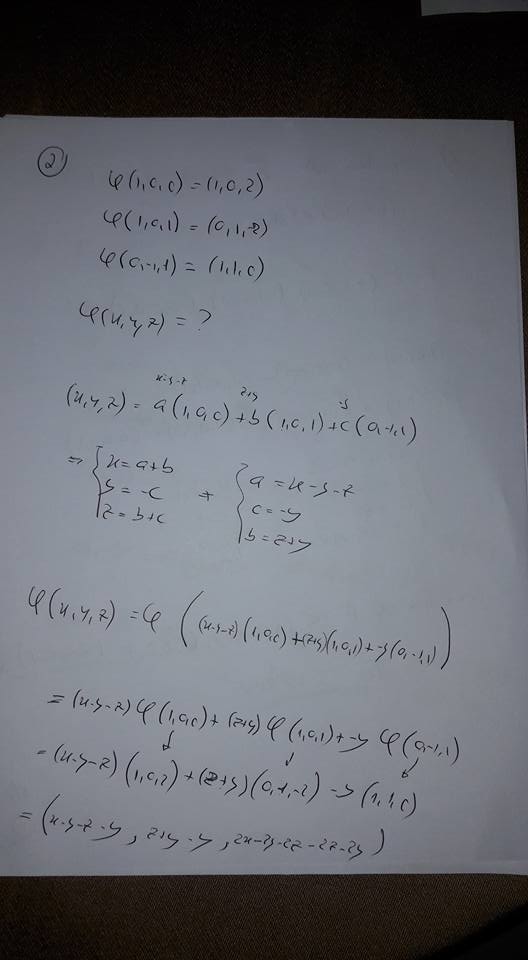 2)
φ(1,0,0) = (1,0,2)
φ(1,0,1) = (0,1,-2)
φ(0,-1,1) = (1,1,0)
φ(x,y,z) = ?
x-y-z z+y -y
(x,y,z) = a(1,0,0) + b(1,0,1) + c(0,-1,1)
⇒ { x = a+b { a = x-y-z
y = -c c = -y
z = b+c b = z+y
φ(x,y,z) = φ((x-y-z)(1,0,0) + (z+y)(1,0,1) + -y(0,-1,1))
= (x-y-z) φ(1,0,0) + (z+y) φ(1,0,1) + -y φ(0,-1,1)
= (x-y-z)(1,0,2) + (z+y)(0,1,-2) - y(1,1,0)
= (x-y-z-y, z+y-y, 2x-2y-2z-2z-2y)